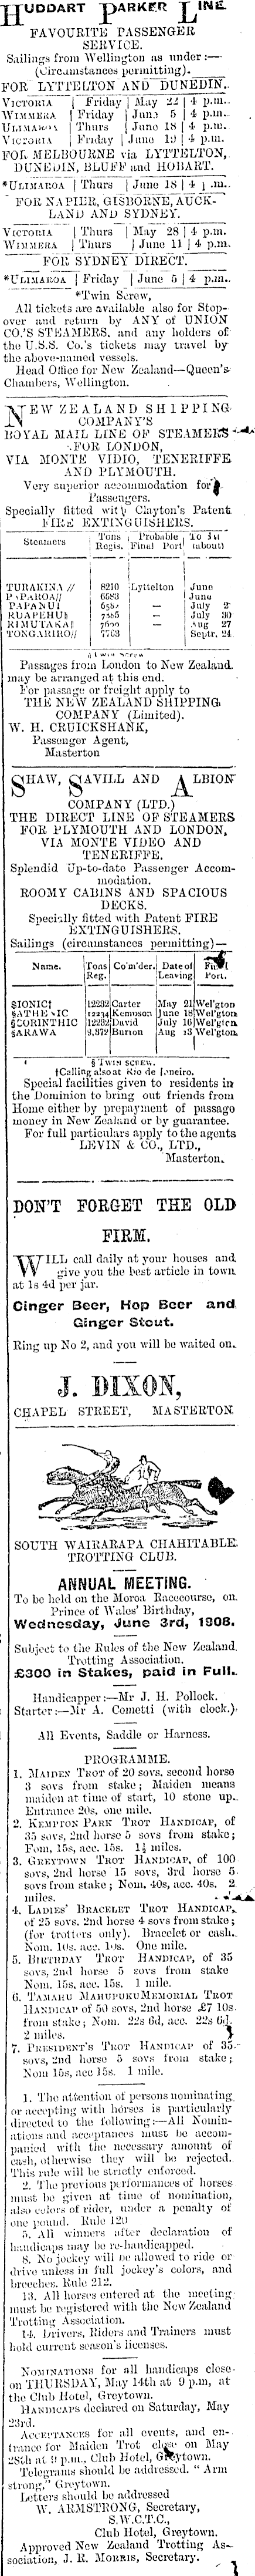 HUDDART PARKER LINE
FAVOURITE PASSENGER
SERVICE.
Sailings from Wellington as under :—
(Circumstances permitting).
FOR LYTTELTON AND DUNEDIN.
VICTORIA | Friday | May 22 | 4 p.m.
WIMMERA | Friday | June 5 | 4 p.m.
ULIMAROA | Thurs | June 18 | 4 p.m.
VICTORIA | Friday | June 19 | 4 p.m.
FOR MELBOURNE via LYTTELTON,
DUNEDIN, BLUFF and HOBART.
*ULIMAROA | Thurs | June 18 | 4 p.m.
FOR NAPIER, GISBORNE, AUCK-
LAND AND SYDNEY.
VICTORIA | Thurs | May 28 | 4 p.m.
WIMMERA | Thurs | June 11 | 4 p.m.
FOR SYDNEY DIRECT.
*ULIMAROA | Friday | June 5 | 4 p.m.
*Twin Screw,
All tickets are available also for Stop-
over and return by ANY of UNION
CO.'S STEAMERS, and any holders of
the U.S.S. Co.'s tickets may travel by
the above-named vessels.
Head Office for New Zealand—Queen's
Chambers, Wellington.
NEW ZEALAND SHIPPING
COMPANY'S
ROYAL MAIL LINE OF STEAMERS
FOR LONDON,
VIA MONTE VIDIO, TENERIFFE
AND PLYMOUTH.
Very superior accommodation for
Passengers.
Specially fitted with Clayton's Patent
FIRE EXTINGUISHERS.
Steamers | Tons Regis. | Probable Final Port | To Sail (about)
TURAKINA // | 8210 | Lyttelton | June
PAPAROA// | 6583 | June
PAPANUI | — | July 2
RUAPEHU§ | — | July 30
RIMUTAKA§ | — | Aug 27
TONGARIRO// | 7763 | Septr. 24
Twin Screw
Passages from London to New Zealand
may be arranged at this end.
For passage or freight apply to
THE NEW ZEALAND SHIPPING
COMPANY (Limited).
W. H. CRUICKSHANK,
Passenger Agent,
Masterton
SHAW, SAVILL AND ALBION
COMPANY (LTD.)
THE DIRECT LINE OF STEAMERS
FOR PLYMOUTH AND LONDON,
VIA MONTE VIDEO AND
TENERIFFE.
Splendid Up-to-date Passenger Accom-
modation.
ROOMY CABINS AND SPACIOUS
DECKS.
Specially fitted with Patent FIRE
EXTINGUISHERS.
Sailings (circumstances permitting)—
Name. | Tons Reg. | Com'der. | Date of Leaving | Final Port.
§IONIC† | 12232 | Carter | May 21 | Wel'gton
§ATHENIC | 12234 | Kempson | June 18 | Wel'gton
§CORINTHIC | 12232 | David | July 16 | Wel'gton
§ARAWA | 9,372 | Burton | Aug 13 | Wel'gton
§ TWIN SCREW.
†Calling also at Rio de Janeiro.
Special facilities given to residents in
the Dominion to bring out friends from
Home either by prepayment of passage
money in New Zealand or by guarantee.
For full particulars apply to the agents
LEVIN & CO., LTD.,
Masterton.
DON'T FORGET THE OLD
FIRM.
WILL call daily at your houses and
give you the best article in town
at 1s 4d per jar.
Ginger Beer, Hop Beer and
Ginger Stout.
Ring up No 2, and you will be waited on.
J. DIXON,
CHAPEL STREET, MASTERTON
SOUTH WAIRARAPA CHAHITABLE
TROTTING CLUB.
ANNUAL MEETING.
To be held on the Moroa Racecourse, on
Prince of Wales' Birthday,
Wednesday, June 3rd, 1908.
Subject to the Rules of the New Zealand
Trotting Association.
£300 in Stakes, paid in Full.
Handicapper:—Mr J. H. Pollock.
Starter:—Mr A. Cometti (with clock.)
All Events, Saddle or Harness.
PROGRAMME.
1. MAIDEN TROT of 20 sovs. second horse
3 sovs from stake; Maiden means
maiden at time of start, 10 stone up.
Entrance 20s, one mile.
2. KEMPTON PARK TROT HANDICAP, of
35 sovs, 2nd horse 5 sovs from stake;
Fom. 15s, acc. 15s. 1½ miles.
3. GREYTOWN TROT HANDICAP, of 100
sovs, 2nd horse 15 sovs, 3rd horse 5
sovs from stake; Nom, 40s, acc. 40s. 2
miles.
4. LADIES' BRACELET TROT HANDICAP,
of 25 sovs. 2nd horse 4 sovs from stake;
(for trotters only). Bracelet or cash.
Nom. 10s. acc. 10s. One mile.
5. BIRTHDAY TROT HANDICAP, of 35
sovs, 2nd horse 5 sovs from stake
Nom. 15s, acc. 15s. 1 mile.
6. TAMAHU MAHUPUKU MEMORIAL TROT
HANDICAP of 50 sovs, 2nd horse £7 10s
from stake; Nom. 22s 6d, acc. 22s 6d.
2 miles.
7. PRESIDENT'S TROT HANDICAP of 35
sovs, 2nd horse 5 sovs from stake;
Nom 15s, acc 15s. 1 mile.
1. The attention of persons nominating
or accepting with horses is particularly
directed to the following:—All Nomin-
ations and acceptances must be accom-
panied with the necessary amount of
cash, otherwise they will be rejected.
This rule will be strictly enforced.
2. The previous performances of horses
must be given at time of nomination,
also colors of rider, under a penalty of
one pound. Rule 120
5. All winners after declaration of
handicaps may be re-handicapped.
8. No jockey will be allowed to ride or
drive unless in full jockey's colors, and
breeches. Rule 212.
13. All horses entered at the meeting
must be registered with the New Zealand
Trotting Association.
14. Drivers, Riders and Trainers must
hold current season's licenses.
NOMINATIONS for all handicaps close
on THURSDAY, May 14th at 9 p.m, at
the Club Hotel, Greytown.
HANDICAPS declared on Saturday, May
23rd.
ACCEPTANCES for all events, and en-
trance for Maiden Trot close on May
28th at 9 p.m., Club Hotel, Greytown.
Telegrams should be addressed. "Arm
strong," Greytown.
Letters should be addressed
W. ARMSTRONG, Secretary,
S.W.C.T.C.,
Club Hotel, Greytown.
Approved New Zealand Trotting As-
sociation, J. R. MORRIS, Secretary.